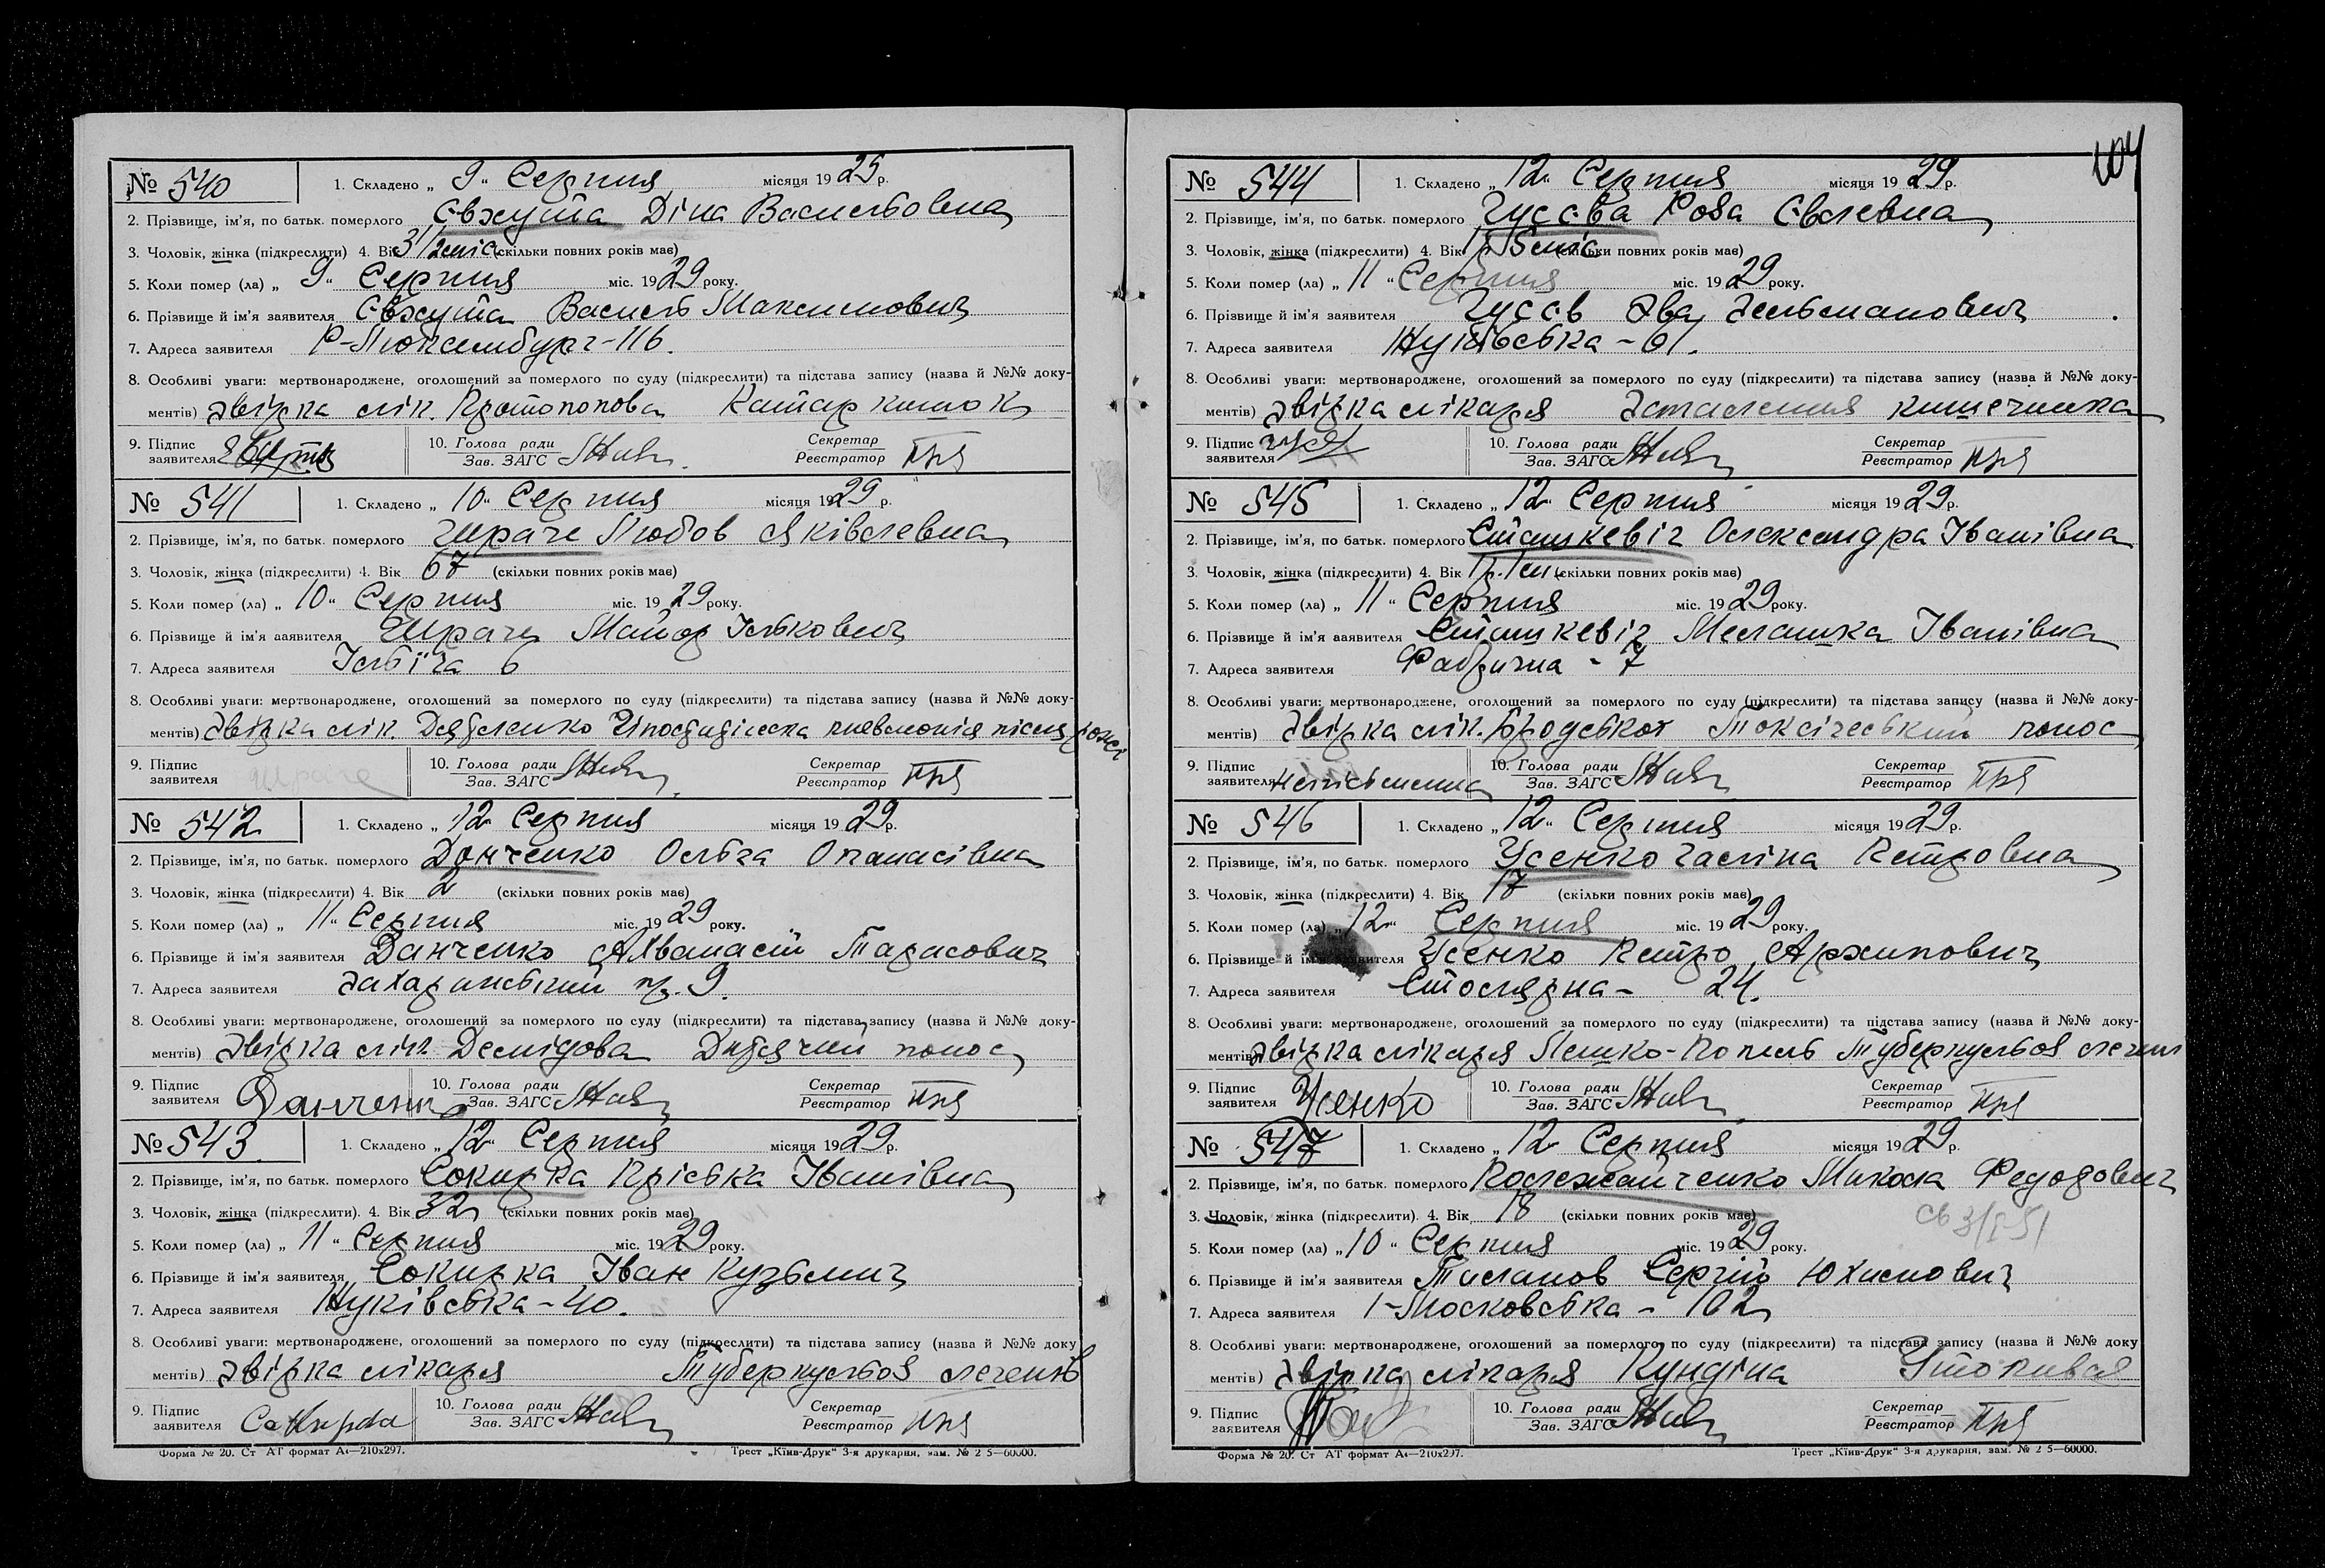 № 540 1. Складено „ 9 “ Серпня місяця 1929 р.
2. Прізвище, ім’я, по батьк. померлого Євжута Діна Васильовна
3. Чоловік, жінка (підкреслити) 4. Вік 3 1/2 міс (скільки повних років має)
5. Коли помер (ла) „ 9 “ Серпня міс. 1929 року.
6. Прізвище й ім’я заявителя Євжута Василь Максимович
7. Адреса заявителя Р-Люксембург-116.
8. Особливі уваги: мертвонароджене, оголошений за померлого по суду (підкреслити) та підстава запису (назва й №№ доку-
ментів) Двірка лік. Протопопова Катар кишок
9. Підпис заявителя 10. Голова ради Зав. ЗАГС Секретар Реєстратор
№ 541 1. Складено „ 10 “ Серпня місяця 1929 р.
2. Прізвище, ім’я, по батьк. померлого Любов Яківлевна
3. Чоловік, жінка (підкреслити) 4. Вік 67 (скільки повних років має)
5. Коли помер (ла) „ 10 “ Серпня міс. 19 29 року.
6. Прізвище й ім’я заявителя Майор Ількович
7. Адреса заявителя Ілліча 6
8. Особливі уваги: мертвонароджене, оголошений за померлого по суду (підкреслити) та підстава запису (назва й №№ доку-
ментів) Двірка лік. Дятленко Гіпостатіческа пневмонія після
9. Підпис заявителя 10. Голова ради Зав. ЗАГС Секретар Реєстратор
№ 542 1. Складено „ 12 “ Серпня місяця 19 29 р.
2. Прізвище, ім’я, по батьк. померлого Данченко Ольга Опанасівна
3. Чоловік, жінка (підкреслити) 4. Вік 2 (скільки повних років має)
5. Коли помер (ла) „ 11 “ Серпня міс. 19 29 року.
6. Прізвище й ім’я заявителя Данченко Ахванасій Тарасович
7. Адреса заявителя Захаринський пр. 9.
8. Особливі уваги: мертвонароджене, оголошений за померлого по суду (підкреслити) та підстава запису (назва й №№ доку-
ментів) Двірка лік. Демідова Дитячий понос
9. Підпис заявителя Данченко 10. Голова ради Зав. ЗАГС Секретар Реєстратор
№ 543 1. Складено „ 12 “ Серпня місяця 1929 р.
2. Прізвище, ім’я, по батьк. померлого Сокирка Пріська Іванівна
3. Чоловік, жінка (підкреслити). 4. Вік 32 (скільки повних років має)
5. Коли помер (ла) „ 11 “ Серпня міс. 1929 року.
6. Прізвище й ім’я заявителя Сокирка Іван Кузьмич
7. Адреса заявителя Жуківська-40.
8. Особливі уваги: мертвонароджене, оголошений за померлого по суду (підкреслити) та підстава запису (назва й №№ доку
ментів) Двірка лікаря Туберкульоз легенів
9. Підпис заявителя Сокирка 10. Голова ради Зав. ЗАГС Секретар Реєстратор
Форма № 20. Ст АТ формат А4—210х297. Трест „Київ-Друк“ 3-я друкарня, зам. № 2 5—60000.
104
№ 544 1. Складено „ 12 “ Серпня місяця 19 29 р.
2. Прізвище, ім’я, по батьк. померлого Гусєва Роза Євлевна
3. Чоловік, жінка (підкреслити) 4. Вік 1 р 5 міс (скільки повних років має)
5. Коли помер (ла) „ 11 “ Серпня міс. 19 29 року.
6. Прізвище й ім’я заявителя Гусєв Гельманович
7. Адреса заявителя Жуківська - 61.
8. Особливі уваги: мертвонароджене, оголошений за померлого по суду (підкреслити) та підстава запису (назва й №№ доку-
ментів) Двірка лікаря Запалення кишечника
9. Підпис заявителя 10. Голова ради Зав. ЗАГС Секретар Реєстратор
№ 545 1. Складено „ 12 “ Серпня місяця 19 29 р.
2. Прізвище, ім’я, по батьк. померлого Сташкевіч Олександра Іванівна
3. Чоловік, жінка (підкреслити) 4. Вік 1 р. 1 м (скільки повних років має)
5. Коли помер (ла) „ 11 “ Серпня міс. 19 29 року.
6. Прізвище й ім’я заявителя Сташкевіч Мелашка Іванівна
7. Адреса заявителя Фабрична - 7
8. Особливі уваги: мертвонароджене, оголошений за померлого по суду (підкреслити) та підстава запису (назва й №№ доку-
ментів) Двірка лік. Бродської Токсічеський понос
9. Підпис заявителя неписьменна 10. Голова ради Зав. ЗАГС Секретар Реєстратор
№ 546 1. Складено „ 12 “ Серпня місяця 19 29 р.
2. Прізвище, ім’я, по батьк. померлого Усенко Галіна Петровна
3. Чоловік, жінка (підкреслити) 4. Вік 17 (скільки повних років має)
5. Коли помер (ла) „ 12 “ Серпня міс. 19 29 року.
6. Прізвище й ім’я заявителя Усенко Петро Архипович
7. Адреса заявителя Столярна - 24.
8. Особливі уваги: мертвонароджене, оголошений за померлого по суду (підкреслити) та підстава запису (назва й №№ доку-
ментів) Двірка лікаря Туберкульоз легени
9. Підпис заявителя Усенко 10. Голова ради Зав. ЗАГС Секретар Реєстратор
№ 547 1. Складено „ 12 “ Серпня місяця 19 29 р.
2. Прізвище, ім’я, по батьк. померлого Микола Федорович
3. Чоловік, жінка (підкреслити). 4. Вік 18 (скільки повних років має)
5. Коли помер (ла) „ 10 “ Серпня міс. 19 29 року.
6. Прізвище й ім’я заявителя Сергій Юхимович
7. Адреса заявителя 1-Московська - 102
8. Особливі уваги: мертвонароджене, оголошений за померлого по суду (підкреслити) та підстава запису (назва й №№ доку
ментів) Двірка лікаря Кундіна Утопився
9. Підпис заявителя 10. Голова ради Зав. ЗАГС Секретар Реєстратор
Форма № 20. Ст АТ формат А4—210х297. Трест „Київ-Друк“ 3-я друкарня, зам. № 2 5—60000.